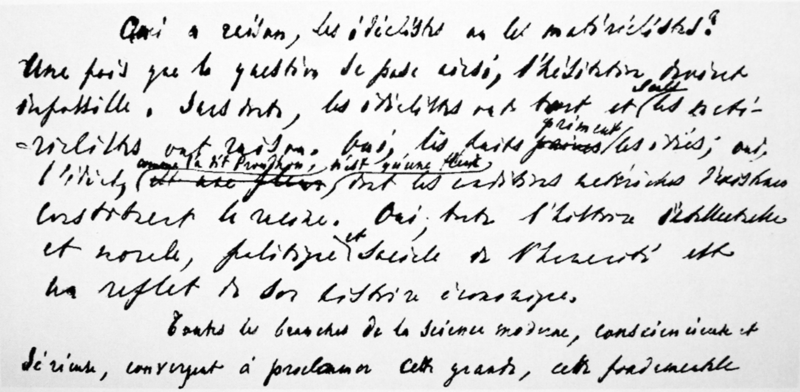 Qui a raison, les idéalistes ou les matérialistes?
Une fois que la question se pose ainsi, l'hésitation devient
impossible. Sans doute, les idéalistes ont tort et seuls les maté-
rialistes ont raison. Oui, les faits priment les idées; oui,
l'idéal, comme l'a dit Proudhon, n'est qu'une fleur est une fleur, dont les conditions matérielles d'existence
constituent la racine. Oui, toute l'histoire intellectuelle
et morale, politique et sociale de l'humanité est
un reflet de son histoire économique.
Toutes les branches de la science moderne, consciencieuse et
sérieuse, convergent à proclamer cette grande, cette fondamentale